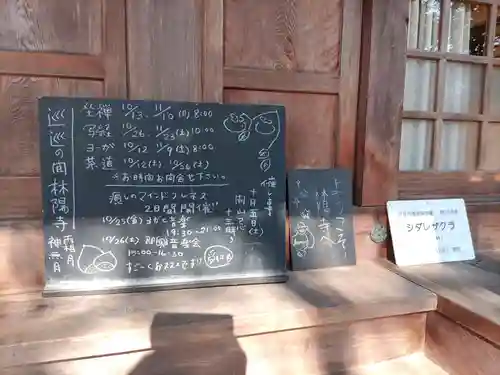 坐禅 10/13、11/10(日)8:00
写経 10/26、11/23(土)10:00
ヨーが 10/12、11/9(土)8:00
茶道 10/12(土)、10/26(土)
☆お時間お問合せ下さい
癒しのマインドフルネス
2日間開催!!
10/25(金)ヨガと音楽
19:30〜
10/26(土)即興音楽会
15:00-16:30
すご〜くおススメです!!
催し事
十月五日(土)
開山忌
十三時〜
林陽寺
神無月
霜月
ようこそ
林陽寺へ
シダレザクラ